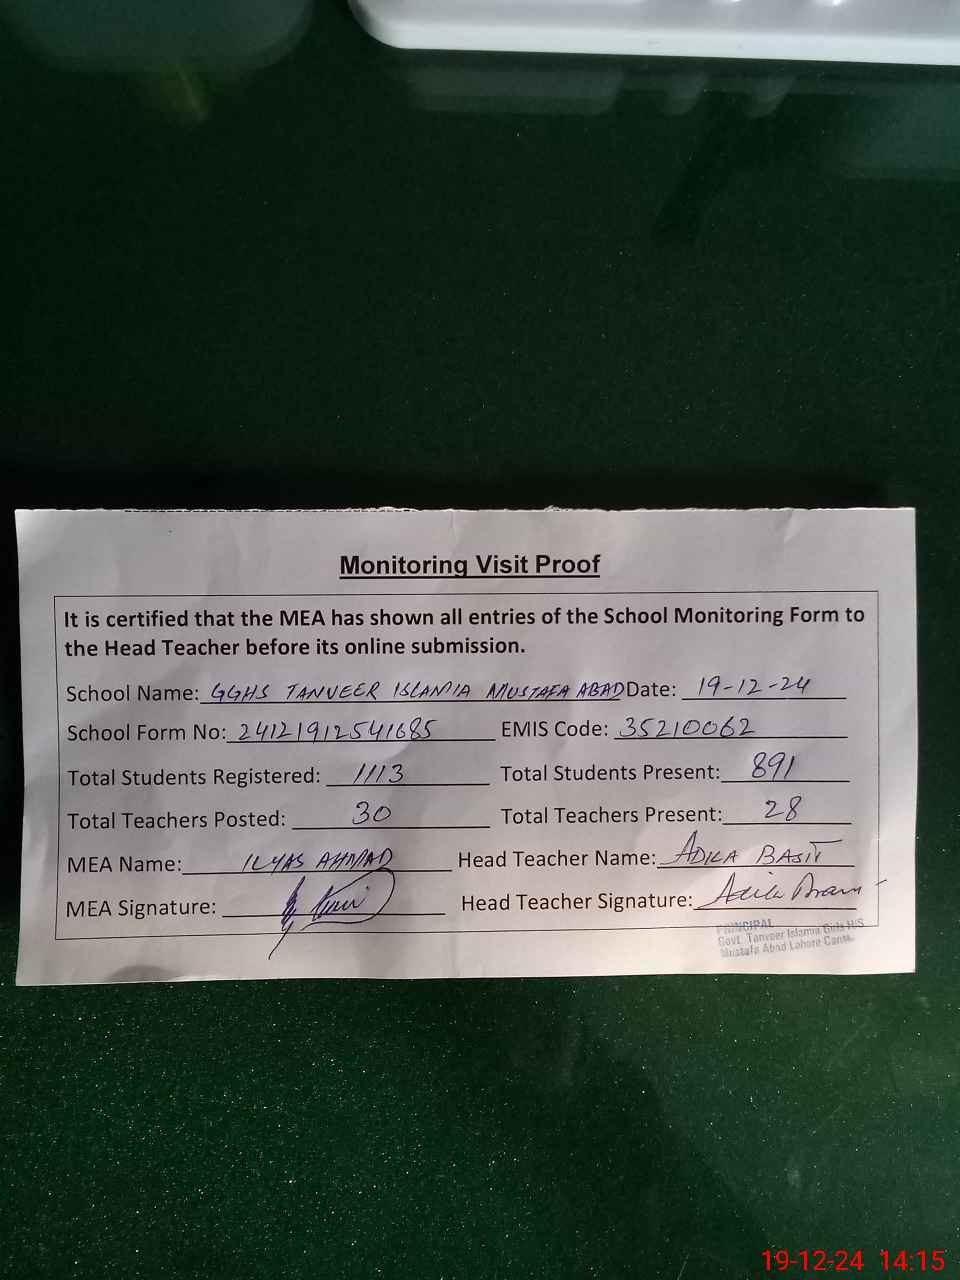 Monitoring Visit Proof
It is certified that the MEA has shown all entries of the School Monitoring Form to
the Head Teacher before its online submission.
School Name: GGHS TANVEER ISLAMIA MUSTAFA ABAD Date: 19-12-24
School Form No: 24121912541685 EMIS Code: 35210062
Total Students Registered: 1113 Total Students Present: 891
Total Teachers Posted: 30 Total Teachers Present: 28
MEA Name: ILYAS AHMAD Head Teacher Name: ADILA BASIT
MEA Signature: Head Teacher Signature: Adila
PRINCIPAL
Govt. Tanveer Islamia Girls H/S
Mustafa Abad Lahore Cantt.
19-12-24 14:15